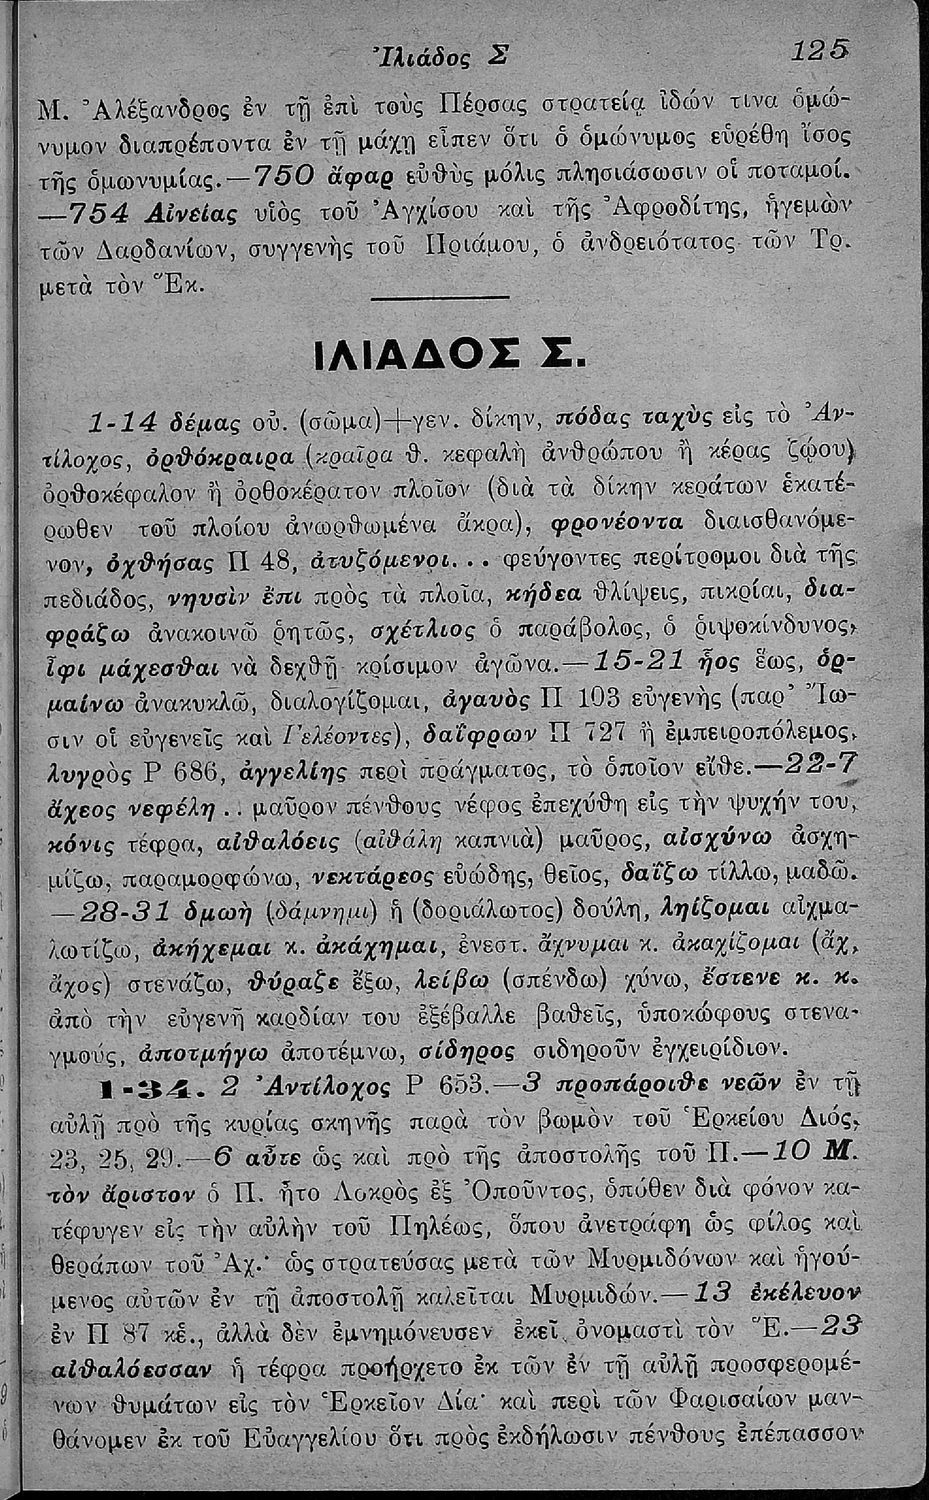 Ἰλιάδος Σ 125
Μ. Ἀλέξανδρος ἐν τῇ ἐπὶ τοὺς Πέρσας στρατείᾳ ἰδών τινα ὁμώ-
νυμον διαπρέποντα ἐν τῇ μάχῃ εἶπεν ὅτι ὁ ὁμώνυμος εὑρέθη ἴσος
τῆς ὁμωνυμίας.—750 ἄφαρ εὐθὺς μόλις πλησιάσωσιν οἱ ποταμοί.
—754 Αἰνείας υἱὸς τοῦ Ἀγχίσου καὶ τῆς Ἀφροδίτης, ἡγεμὼν
τῶν Δαρδανίων, συγγενὴς τοῦ Πριάμου, ὁ ἀνδρειότατος τῶν Τρ.
μετὰ τὸν Ἕκ.
ΙΛΙΑΔΟΣ Σ.
1-14 δέμας οὐ. (σῶμα)+γεν. δίκην, πόδας ταχὺς εἰς τὸ Ἀν-
τίλοχος, ὀρθόκραιρα (κραῖρα θ. κεφαλὴ ἀνθρώπου ἢ κέρας ζῴου)
ὀρθοκέφαλον ἢ ὀρθοκέρατον πλοῖον (διὰ τὰ δίκην κεράτων ἑκατέ-
ρωθεν τοῦ πλοίου ἀνωρθωμένα ἄκρα), φρονέοντα διαισθανόμε-
νον, ὀχθήσας Π 48, ἀτυζόμενοι... φεύγοντες περίτρομοι διὰ τῆς
πεδιάδος, νηυσὶν ἔπι πρὸς τὰ πλοῖα, κήδεα θλίψεις, πικρίαι, δια-
φράζω ἀνακοινῶ ῥητῶς, σχέτλιος ὁ παράβολος, ὁ ῥιψοκίνδυνος,
ἶφι μάχεσθαι νὰ δεχθῇ κρίσιμον ἀγῶνα.—15-21 ἧος ἕως, ὁρ-
μαίνω ἀνακυκλῶ, διαλογίζομαι, ἀγαυὸς Π 103 εὐγενὴς (παρ' Ἴω-
σιν οἱ εὐγενεῖς καὶ Γελέοντες), δαΐφρων Π 727 ἢ ἐμπειροπόλεμος,
λυγρὸς Ρ 686, ἀγγελίης περὶ πράγματος, τὸ ὁποῖον εἴθε.—22-7
ἄχεος νεφέλη .. μαῦρον πένθους νέφος ἐπεχύθη εἰς τὴν ψυχήν του,
κόνις τέφρα, αἰθαλόεις (αἰθάλη καπνιὰ) μαῦρος, αἰσχύνω ἀσχη-
μίζω, παραμορφώνω, νεκτάρεος εὐώδης, θεῖος, δαΐζω τίλλω, μαδῶ.
—28-31 δμωὴ (δάμνημι) ἡ (δοριάλωτος) δούλη, ληίζομαι αἰχμα-
λωτίζω, ἀκήχεμαι κ. ἀκάχημαι, ἐνεστ. ἄχνυμαι κ. ἀκαχίζομαι (ἀχ,
ἄχος) στενάζω, θύραζε ἔξω, λείβω (σπένδω) χύνω, ἔστενε κ. κ.
ἀπὸ τὴν εὐγενῆ καρδίαν του ἐξέβαλλε βαθεῖς, ὑποκώφους στενα-
γμούς, ἀποτμήγω ἀποτέμνω, σίδηρος σιδηροῦν ἐγχειρίδιον.
1-34. 2 Ἀντίλοχος Ρ 653.—3 προπάροιθε νεῶν ἐν τῇ
αὐλῇ πρὸ τῆς κυρίας σκηνῆς παρὰ τὸν βωμὸν τοῦ Ἑρκείου Διός,
23, 25, 29.—6 αὖτε ὡς καὶ πρὸ τῆς ἀποστολῆς τοῦ Π.—10 Μ.
τὸν ἄριστον ὁ Π. ἦτο Λοκρὸς ἐξ Ὀποῦντος, ὁπόθεν διὰ φόνον κα-
τέφυγεν εἰς τὴν αὐλὴν τοῦ Πηλέως, ὅπου ἀνετράφη ὡς φίλος καὶ
θεράπων τοῦ Ἀχ.· ὡς στρατεύσας μετὰ τῶν Μυρμιδόνων καὶ ἡγού-
μενος αὐτῶν ἐν τῇ ἀποστολῇ καλεῖται Μυρμιδών.—13 ἐκέλευον
ἐν Π 87 κἑ., ἀλλὰ δὲν ἐμνημόνευσεν ἐκεῖ ὀνομαστὶ τὸν Ἕ.—23
αἰθαλόεσσαν ἡ τέφρα προήρχετο ἐκ τῶν ἐν τῇ αὐλῇ προσφερομέ-
νων θυμάτων εἰς τὸν Ἑρκεῖον Δία· καὶ περὶ τῶν Φαρισαίων μαν-
θάνομεν ἐκ τοῦ Εὐαγγελίου ὅτι πρὸς ἐκδήλωσιν πένθους ἐπέπασσον